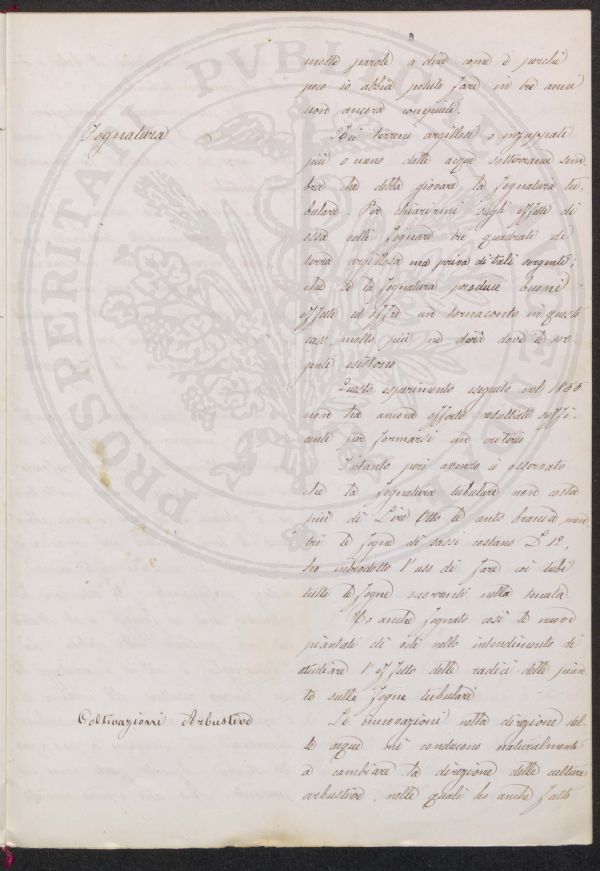 molte parole a dire come e perchè
poco io abbia potuto fare in tre anni
non ancora compiuti.
Fognatura
Nei terreni argillosi o inzuppati
più o meno dalle acque sotterranee sem
bra che debba giovare la fognatura tu-
bulare. Per chiarirmi sugli effetti di
essa volli fognare tre quadrati di
terra argillosa ma priva di tali sorgenti;
che se la fognatura produce buoni
effetti ed offre un tornaconto in questo
caso molto più ne darà dove le sor
genti esistono
Questo esperimento eseguito nel 1855
non ha ancora offerto resultati suffi-
cienti per formarsi un criterio
Intanto però avendo io osservato
che la fognatura tubulare non costa
più di Lire Otto le cento braccia men
tre le fogne di sassi costano £ 12,
ho introdotto l'uso di fare coi tubi
tutte le fogne occorrenti nella tenuta
Ho anche fognato così le nuove
piantate di viti nello intendimento di
studiare l'effetto delle radici delle pian
te sulle fogne tubulari
Coltivazioni Arbustive
Le innovazioni nella direzione del-
le acque mi conducono naturalmente
a cambiare la direzione delle culture
arbustive, nelle quali ho anche fatto
PROSPERITATI PVBLICAE